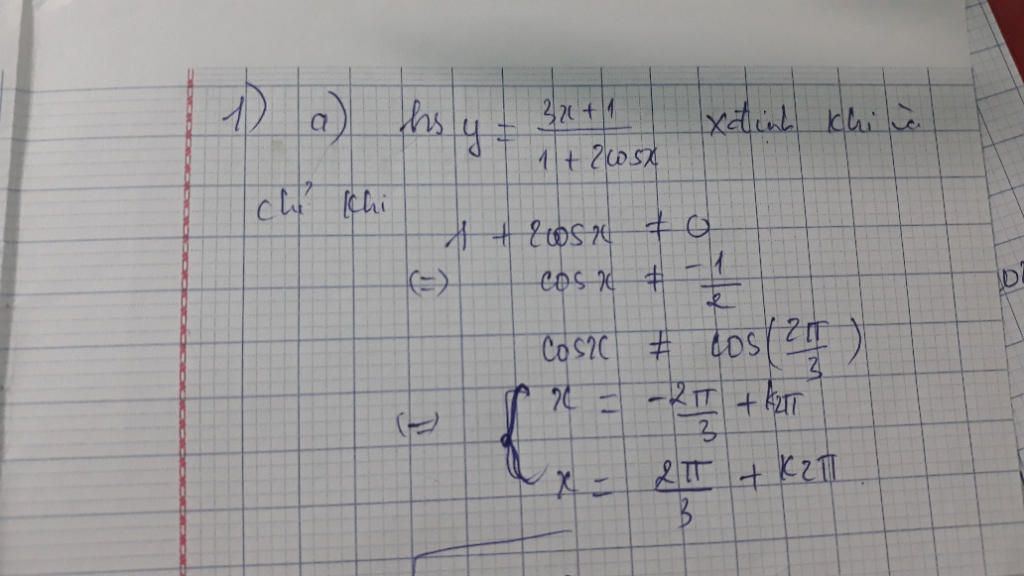 1) a) hs y = (3x+1)/(1+2cosx) xđịnh khi và
chỉ khi
1 + 2cosx ≠ 0
(=) cosx ≠ -1/2
cosx ≠ cos(2π/3)
(=) { x = -2π/3 + k2π
x = 2π/3 + k2π